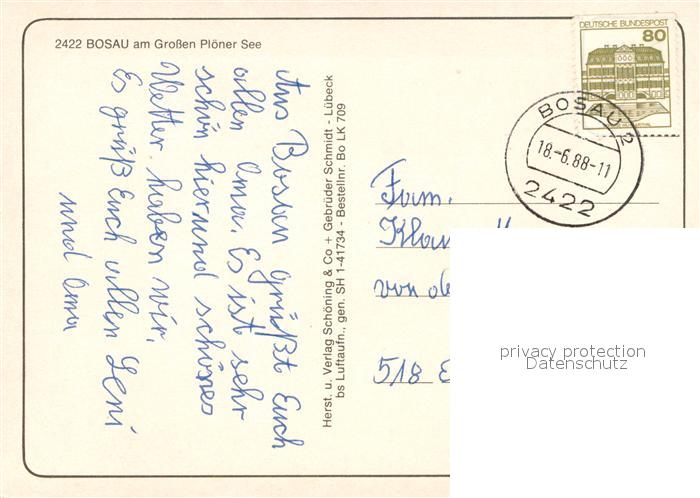 2422 BOSAU am Großen Plöner See
DEUTSCHE BUNDESPOST
80
BOSAU 2
18.-6.88-11
2422
Aus Bosau grüßt Euch
allen Oma. Es ist sehr
schön hier und schönes
Wetter haben wir.
Es grüßt Euch allen Leni
und Oma
Herst. u. Verlag Schöning & Co + Gebrüder Schmidt - Lübeck
bs Luftaufn., gen. SH 1-41734 - Bestellnr. Bo LK 709
Fam.
von de
518 E
privacy protection
Datenschutz